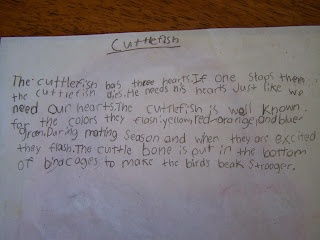 Cuttlefish
The cuttlefish has three hearts. If one stops then
the cuttlefish dies. He needs his hearts just like we
need our hearts. The cuttlefish is well known
for the colors they flash: yellow, red-orange, and blue-
green. During mating season and when they are excited
they flash. The cuttle bone is put in the bottom
of birdcages to make the birds beak stronger.